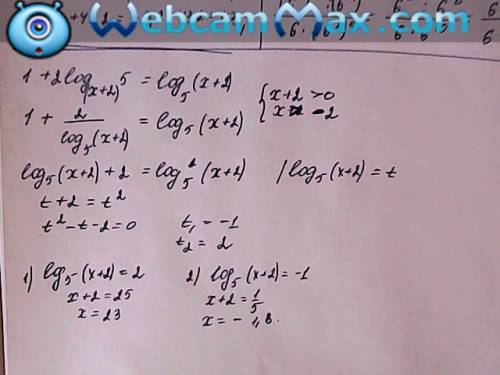 WebcamMax.com
1 + 2log_(x+2) 5 = log_5 (x+2)
{ x+2 > 0
x -2
1 + 2/log_5(x+2) = log_5 (x+2)
log_5 (x+2) + 2 = log_5^2 (x+2) / log_5 (x+2) = t
t + 2 = t^2
t^2 - t - 2 = 0
t_1 = -1
t_2 = 2
1) log_5 (x+2) = 2
x+2 = 25
x = 23
2) log_5 (x+2) = -1
x+2 = 1/5
x = - 1,8.